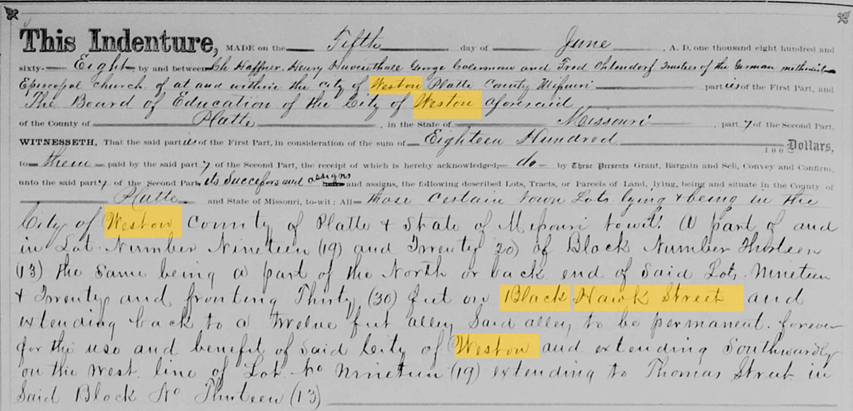 This Indenture, MADE on the Fifth day of June, A. D. one thousand eight hundred and
sixty-Eight by and between Henry George and Fred Ohlendorf Trustees of the German methodist
Episcopal church of at and within the city of Weston Platte County Missouri parties of the First Part, and
The Board of Education of the City of Weston aforesaid
of the County of Platte, in the State of Missouri party of the Second Part,
WITNESSETH, That the said parties of the First Part, in consideration of the sum of Eighteen Hundred 100 Dollars,
to them paid by the said party of the Second Part, the receipt of which is hereby acknowledged, do by These Presents Grant, Bargain and Sell, Convey and Confirm,
unto the said party of the Second Part its Successors and assigns and assigns, the following described Lots, Tracts, or Parcels of Land, lying, being and situate in the County of
Platte and State of Missouri, to-wit: All those certain town Lots lying & being in the
City of Weston County of Platte & State of Missouri towit: A part of and
in Lot Number Nineteen (19) and Twenty 20) of Block Number Thirteen
(13) the same being a part of the North or back end of said Lots Nineteen
& Twenty and fronting Thirty (30) feet on Black Hawk Street and
extending back to a twelve feet alley Said alley to be permanent forever
for the use and benefit of said City of Weston and extending Southwardly
on the West line of Lot No Nineteen (19) extending to Thomas Street in
Said Block No Thirteen (13)